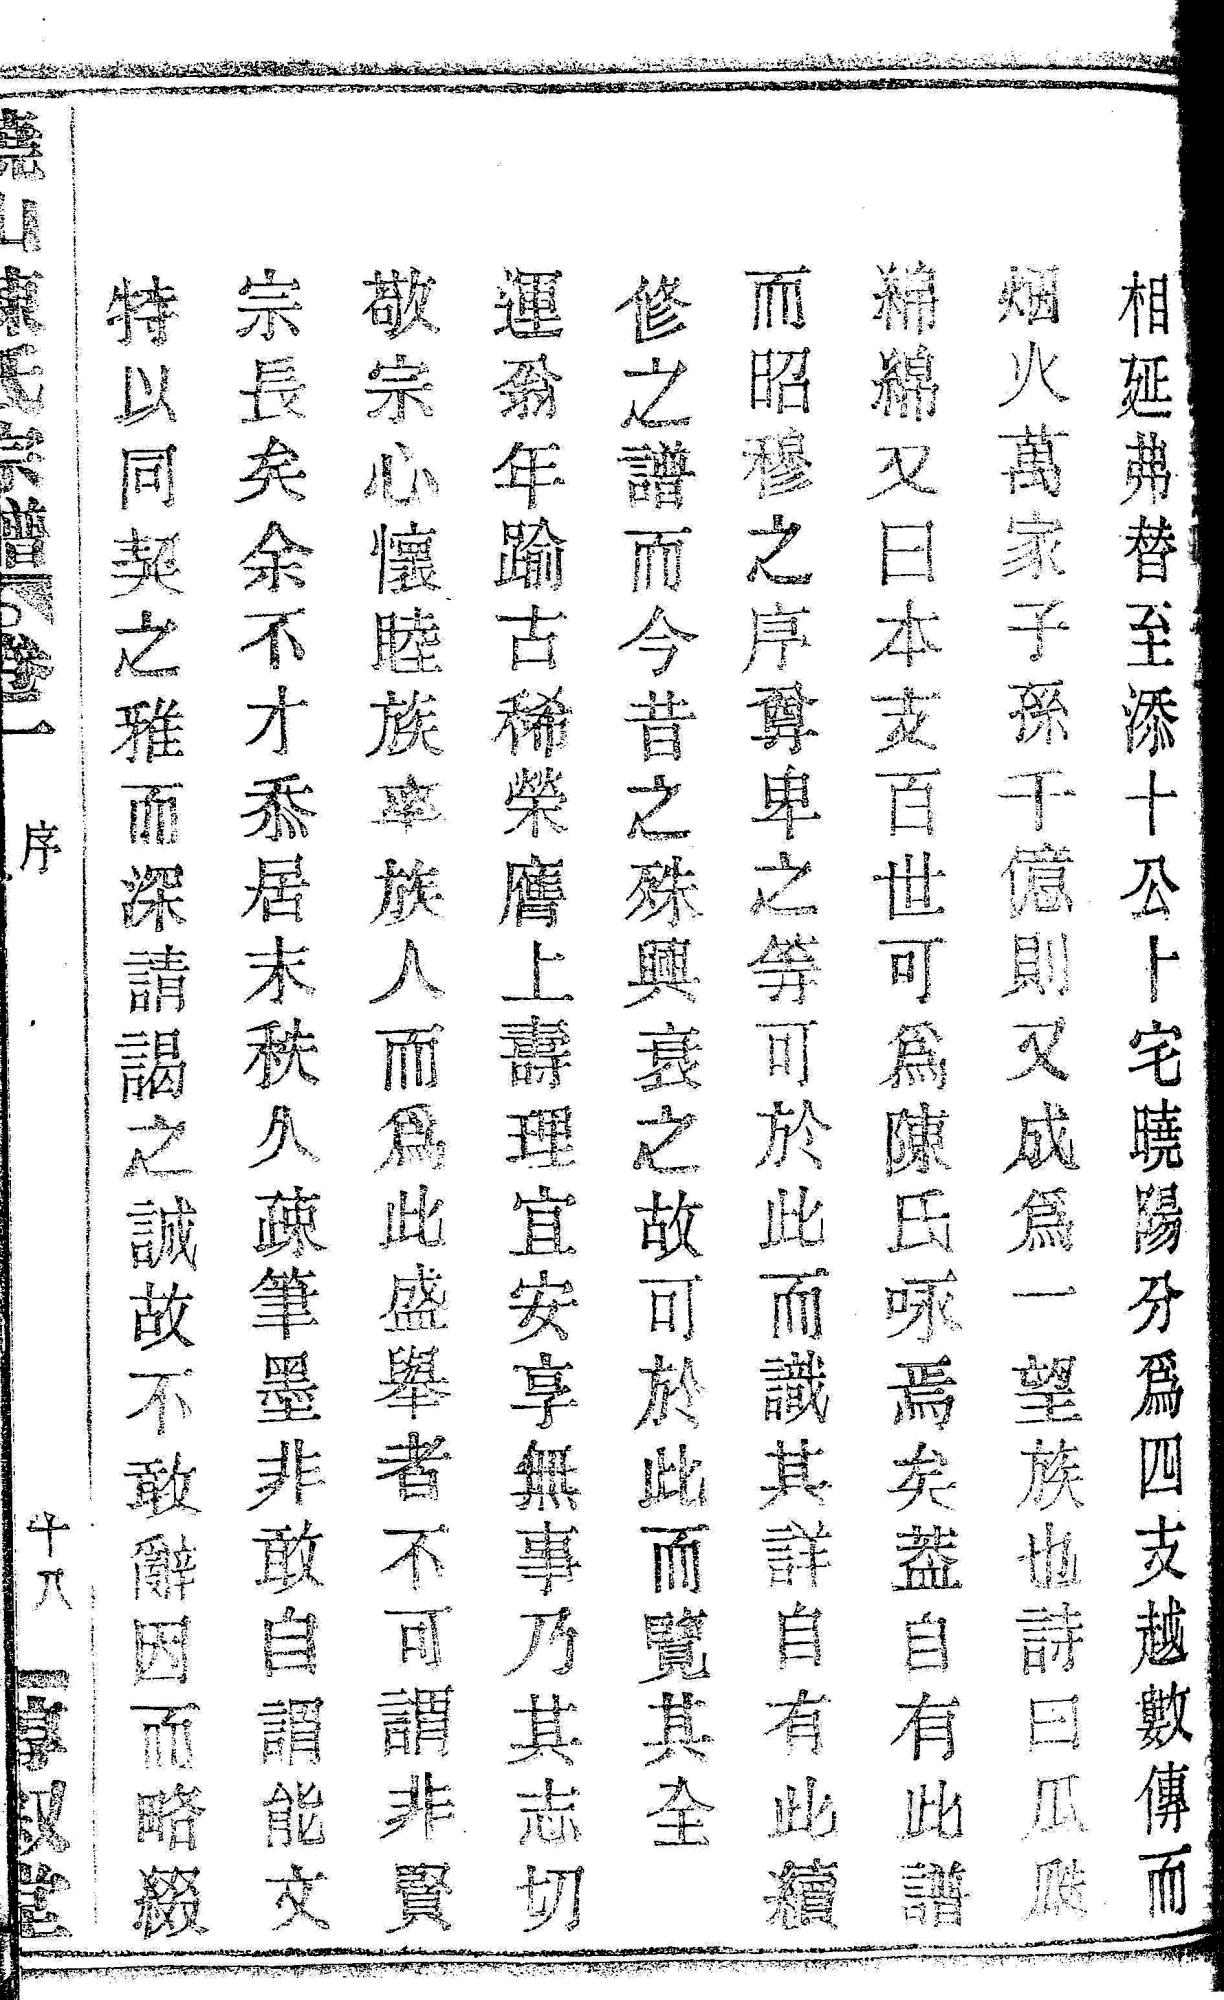 相延弗替至添十公卜宅曉陽分爲四支越數傳而
烟火萬家子孫千億則又成爲一望族也詩曰瓜瓞
綿綿又曰本支百世可爲陳氏咏焉矣蓋自有此譜
而昭穆之序尊卑之等可於此而識其詳自有此續
修之譜而今昔之殊興衰之故可於此而覽其全
運翁年踰古稀榮膺上壽理宜安享無事乃其志切
敬宗心懷睦族率族人而爲此盛舉者不可謂非賢
宗長矣余不才忝居末秩久疎筆墨非敢自謂能文
特以同契之雅而深請謁之誠故不敢辭因而略綴
山陳氏宗譜 卷一 序 十八 享叙堂